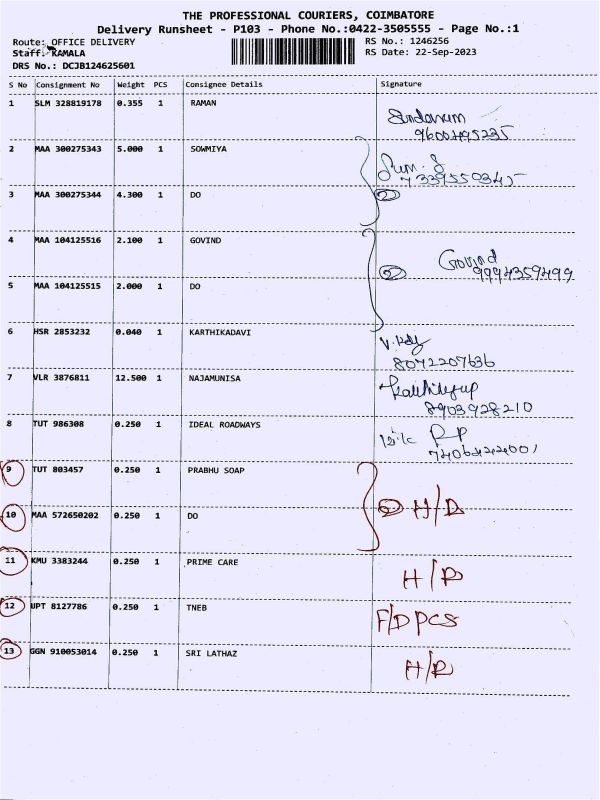 THE PROFESSIONAL COURIERS, COIMBATORE
Delivery Runsheet - P103 - Phone No.:0422-3505555 - Page No.:1
Route: OFFICE DELIVERY
RS No.: 1246256
Staff: KAMALA
RS Date: 22-Sep-2023
DRS No.: DCJB124625601
S No Consignment No Weight PCS Consignee Details Signature
1 SLM 328819178 0.355 1 RAMAN
9600495235
2 MAA 300275343 5.000 1 SOWMIYA
7339550345
3 MAA 300275344 4.300 1 DO 2
4 MAA 104125516 2.100 1 GOVIND Govind
2 9994359499
5 MAA 104125515 2.000 1 DO
6 HSR 2853232 0.040 1 KARTHIKADAVI
8072207636
7 VLR 3876811 12.500 1 NAJAMUNISA
8903928210
8 TUT 986308 0.250 1 IDEAL ROADWAYS
9 TUT 803457 0.250 1 PRABHU SOAP
10 MAA 572650202 0.250 1 DO 2 H/D
11 KMU 3383244 0.250 1 PRIME CARE H/D
12 UPT 8127786 0.250 1 TNEB F/D PCS
13 GGN 910053014 0.250 1 SRI LATHAZ H/D